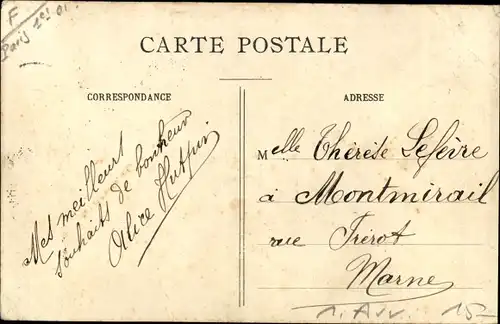 F
Paris 1er
CARTE POSTALE
CORRESPONDANCE
Mes meilleurs
souhaits de bonheur
Alice
ADRESSE
Melle Thérèse Lefèvre
à Montmirail
rue Trérot
Marne
1. Arr. 15-